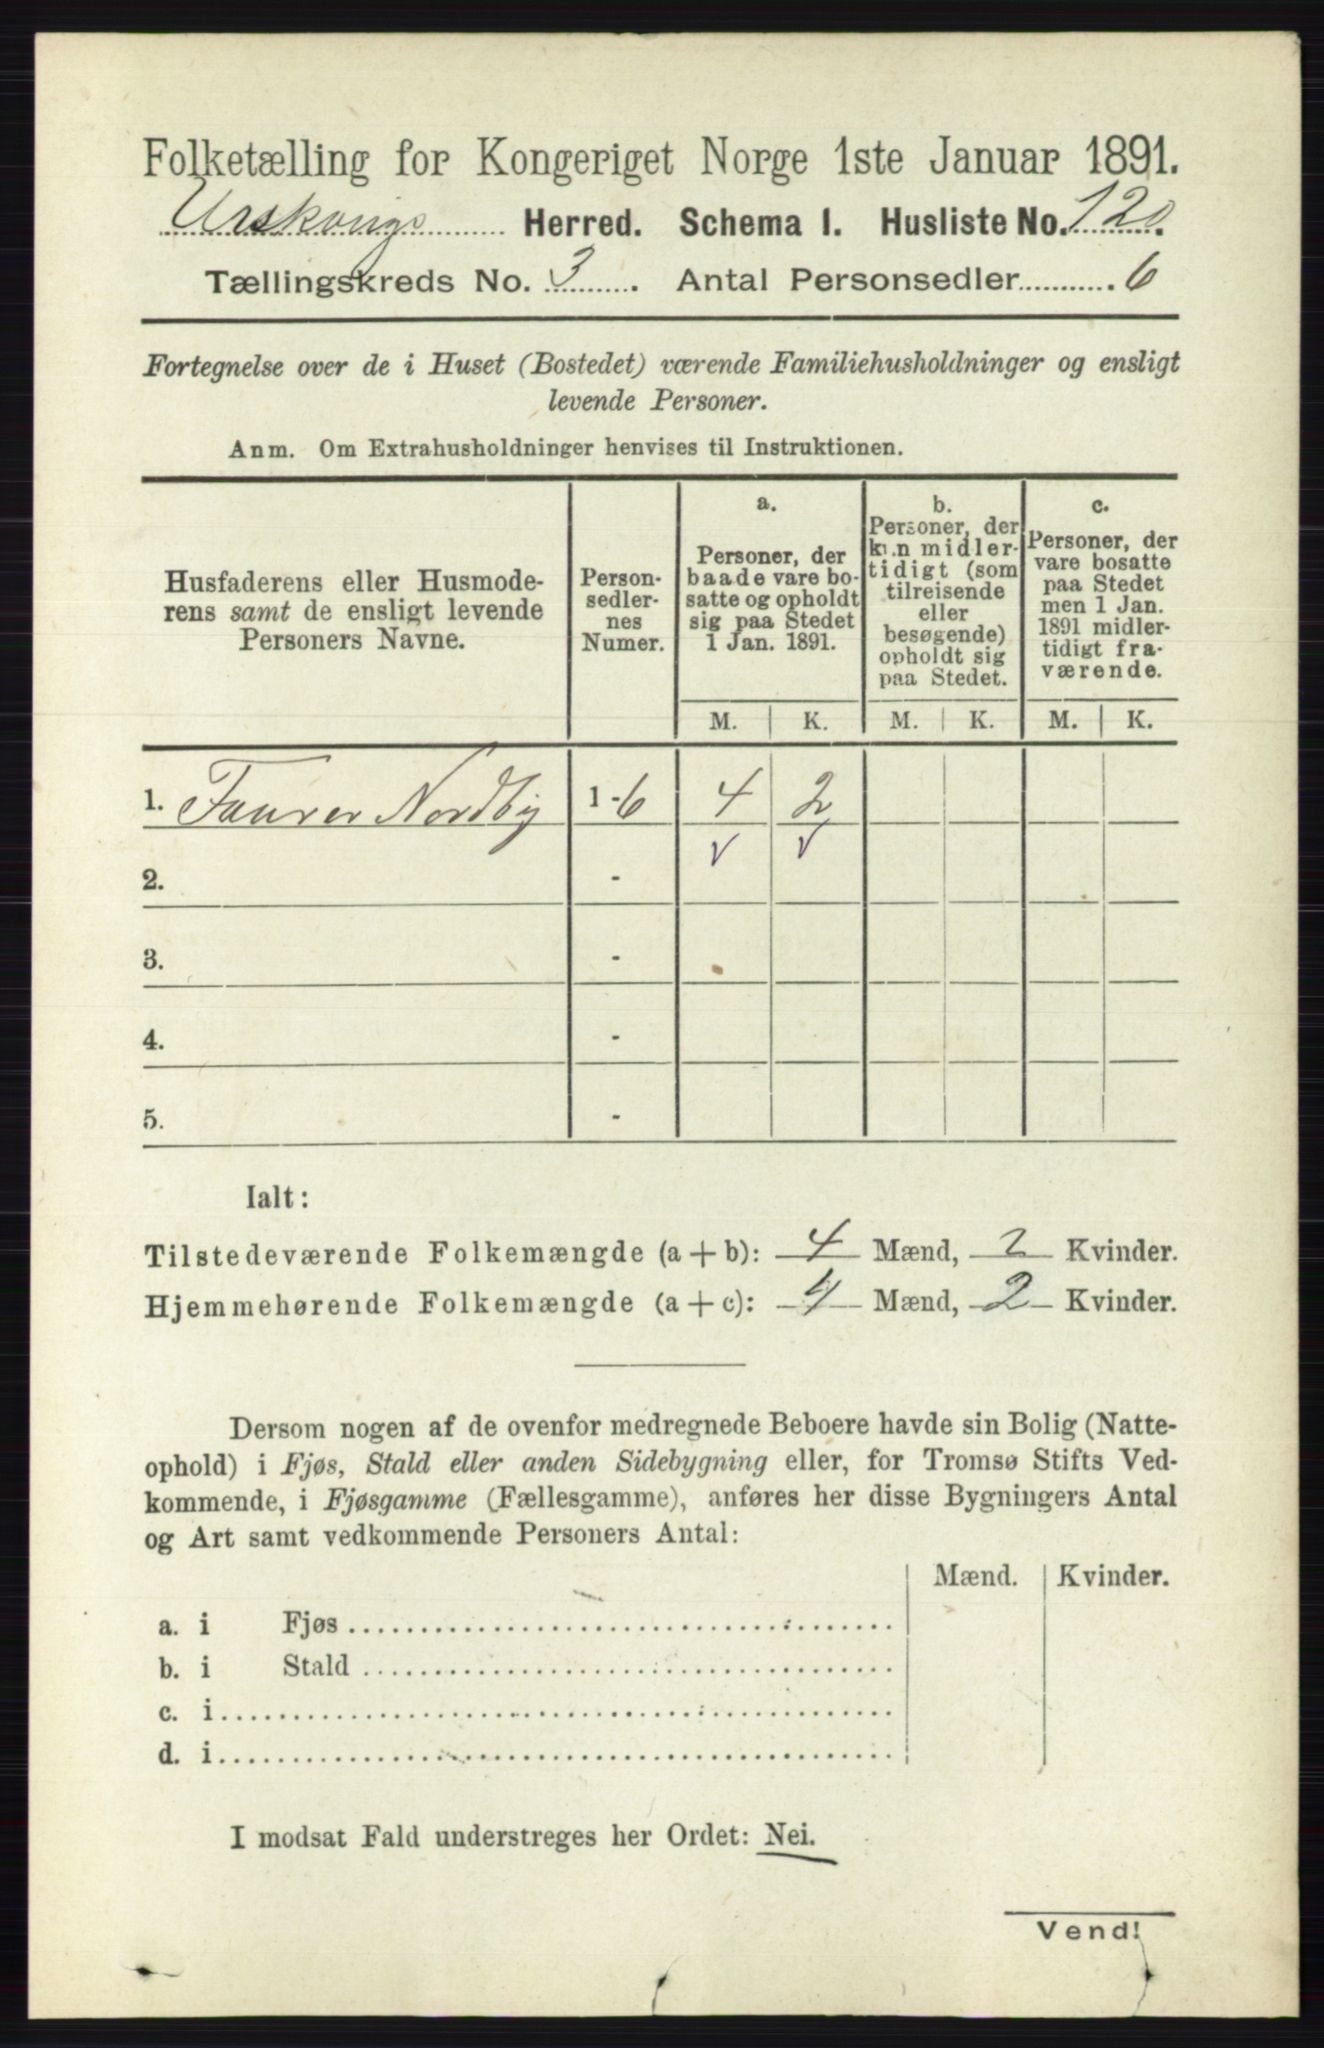 Folketælling for Kongeriget Norge 1ste Januar 1891.
Urskougs Herred. Schema I. Husliste No. 120.
Tællingskreds No. 3. Antal Personsedler 6
Fortegnelse over de i Huset (Bostedet) værende Familiehusholdninger og ensligt
levende Personer.
Anm. Om Extrahusholdninger henvises til Instruktionen.
Husfaderens eller Husmode-
rens samt de ensligt levende
Personers Navne.
Person-
sedler-
nes
Numer.
a.
Personer, der
baade vare bo-
satte og opholdt
sig paa Stedet
1 Jan. 1891.
b.
Personer, der
kun midler-
tidigt (som
tilreisende
eller
besøgende)
opholdt sig
paa Stedet.
c.
Personer, der
vare bosatte
paa Stedet
men 1 Jan.
1891 midler-
tidigt fra-
værende.
M. K. M. K. M. K.
1. Faurer Nordby 1-6 4 2
v v
2. -
3. -
4. -
5. -
Ialt:
Tilstedeværende Folkemængde (a + b): 4 Mænd, 2 Kvinder.
Hjemmehørende Folkemængde (a + c): 4 Mænd, 2 Kvinder.
Dersom nogen af de ovenfor medregnede Beboere havde sin Bolig (Natte-
ophold) i Fjøs, Stald eller anden Sidebygning eller, for Tromsø Stifts Ved-
kommende, i Fjøsgamme (Fællesgamme), anføres her disse Bygningers Antal
og Art samt vedkommende Personers Antal:
Mænd. Kvinder.
a. i Fjøs
b. i Stald
c. i
d. i
I modsat Fald understreges her Ordet: Nei.
Vend!